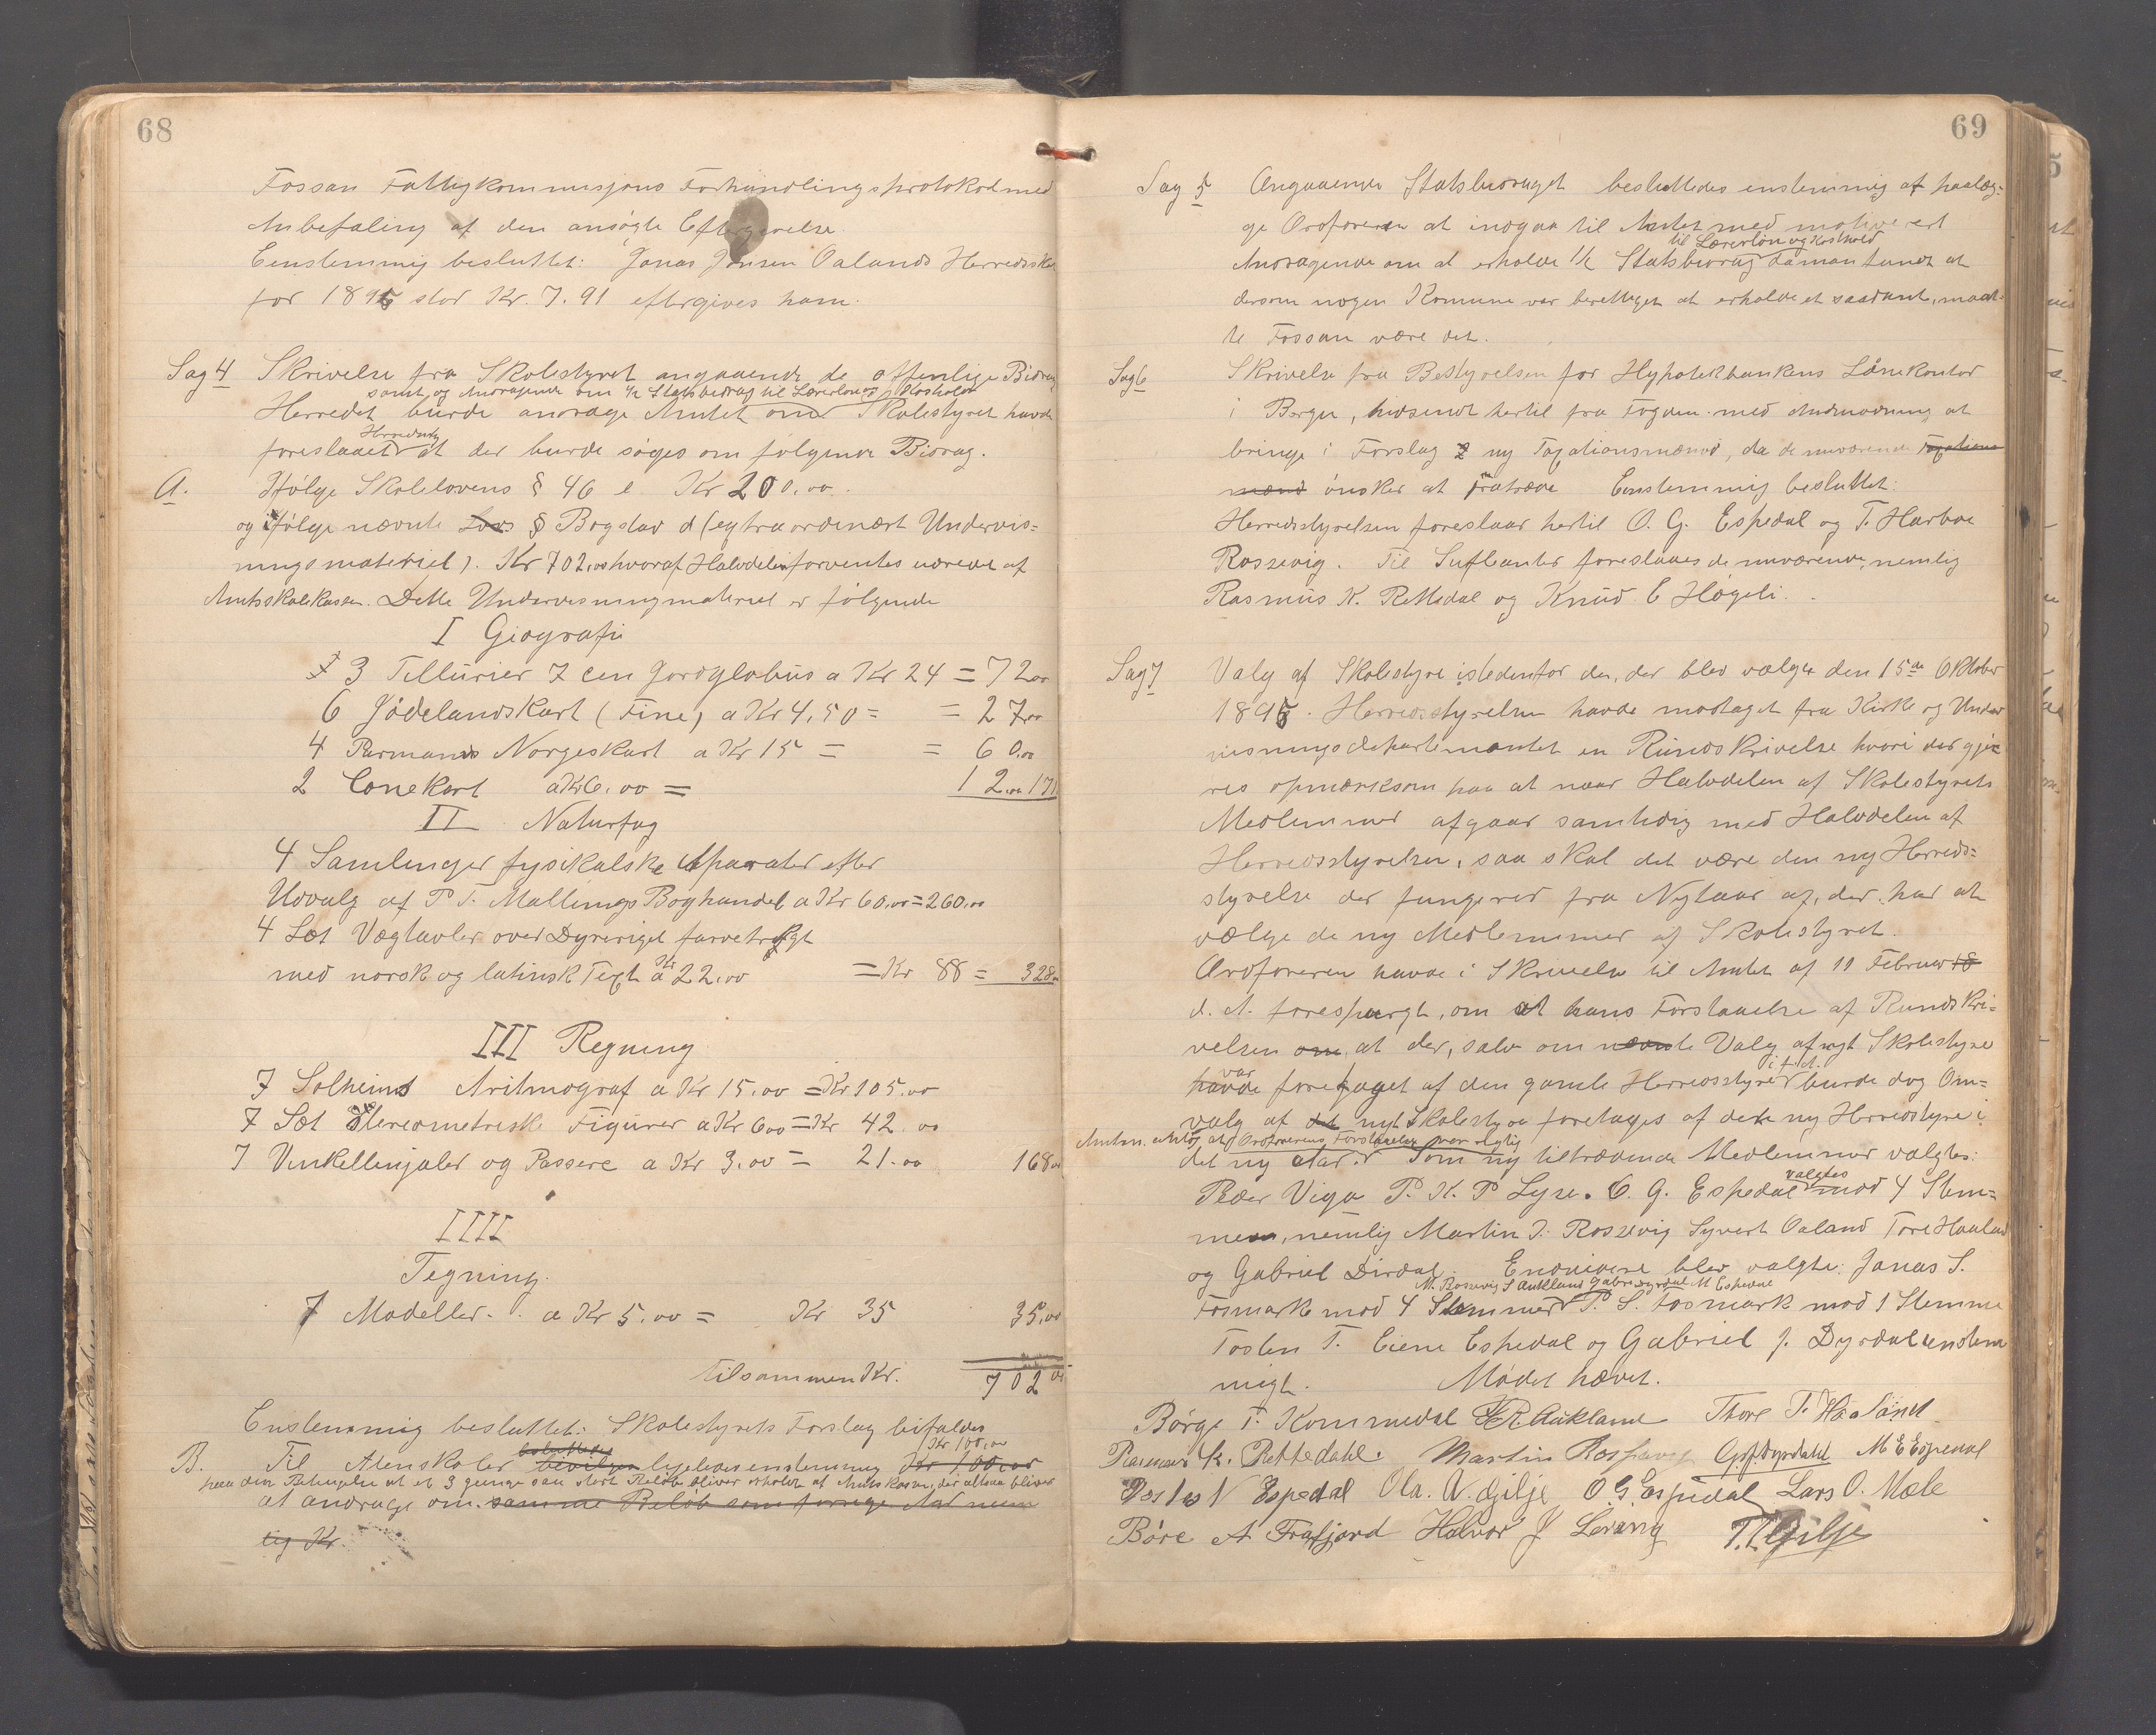 68
Fossan Fattigkommisjons Forhandlingsprotokol med
Anbefaling af den ansøgte Eftergivelse.
Eenstemmig besluttet: Jonas Jonsen Oalands Herredsskat
for 1895 stor Kr. 7.91 eftergives ham.
Sag 4 Skrivelse fra Skolestyret angaaende de offenlige Bidrag
samt og Andragende om ½ Statsbidrag til Lærerløn og Kosthold
Herredet burde andrage Amtet om Skolestyret havde
Herredet
foreslaaet at der burde søges om følgende Bidrag.
A. Ifølge Skolelovens § 46 e Kr 200.00.
og ifølge nævnte Lovs § Bogstav d (extraordinært Undervis=
ningsmateriel). Kr 702.00 hvoraf Halvdelen forventes udredet af
Amtsskolekassen. Dette Undervisningmateriel er følgende
I Giografi
3 Tellurier 7 cm Jordglobus a Kr 24 = 72.00
6 Jødelandskart (Fine) a Kr 4,50 = = 27.00
4 Parmanns Norgeskart a Kr 15 = = 60.00
2 Conekart a Kr 6.00 = 12.00 171
II Naturfag
4 Samlinger fysikalske Aparater efter
Udvalg af P. T. Mallings Boghandel a Kr 60.00 = 260.00
4 Sæt Vægtavler over Dyreriget farvetrygt
med norsk og latinsk Text a Kr 22.00 = Kr 88 = 328.00
III Regning
7 Solheims Aritmograf a Kr 15.00 = Kr 105.00
7 Sæt Stereometriske Figurer a Kr 6.00 = Kr 42.00
7 Vinkellinjaler og Passere a Kr 3.00 = 21.00 168.00
IIII
Tegning.
7 Modeller a Kr 5.00 = Kr 35 35.00
tilsammen Kr. 702.00
Enstemmig besluttet: Skolestyrets Forslag bifaldes
besluttedes Kr 100,00
B. Til Atenskoler bevilges ligeledes enstemmig Kr 100.00
paa den Betingelse at et 3 gange saa stort Beløb bliver erholdt af Amtskassen, der altsaa bliver
at andrage om samme Beløb som forrige Aar nem
lig Kr.
69
Sag 5 Angaaende Statsbidraget besluttedes enstemmig at paalæg=
ge Ordføreren at indgaa til Amtet med motiveret
til Lærerløn og Kosthold
Andragende om at erholde ½ Statsbidrag da man fandt at
dersom nogen Komune var berettiget at erholde et saadant, maat
te Fossan være det.
Sag 6 Skrivelse fra Bestyrelsen for Hypotekbankens Lånekontor
i Bergen, hidsendt hertil fra Fogden med Andmodning at
bringe i Forslag 2 ny Taxationsmænd, da de nuværende Taxations
mænd ønsker at fratræde Eenstemmig besluttet:
Herredsstyrelsen foreslaar hertil O. G. Espedal og T. Harboe
Rossevig. Til Supleanter foreslaaes de nuværende, nemlig
Rasmus K. Rettedal og Knud E Høgeli.
Sag 7 Valg af Skolestyre istedenfor det, der blev valgt den 15de Oktober
1895. Herredsstyrelsen havde modtaget fra Kirke og Under
visningsdepartementet en Rundskrivelse hvori der gjø
res opmærksom paa at naar Halvdelen af Skolestyrets
Medlemmer afgaar samtidig med Halvdelen af
Herredsstyrelsen, saa skal det være den ny Herreds=
styrelse der fungerer fra Nytaar af, der har at
vælge de ny Medlemmer af Skolestyret.
Ordføreren havde i Skrivelse til Amtet af 11 Februar 18
d. A. forespurgt, om at hans Forstaaelse af Rundskri=
velsen om at der, selv om nævnte Valg af nyt Skolestyre
var i f.A.
havde foretaget af den gamle Herredsstyre burde dog Om=
valg af det nyt Skolestyre foretages af dette ny Herredsstyre i
Amtm. antog at Ordførerens Forstaaelse var rigtig
det ny Aar. Som ny tiltrædende Medlemmer valgtes:
valgtes
Peder Viga P. K. P Lyse. O. G. Espedal mod 4 Stem=
mer, nemlig Martin T. Rossevig Syvert Oaland Tore Haaland
og Gabriel Dirdal. Endvidere blev valgte: Jonas S.
M. Rossevig S Aukland Gabriel Dyrdal M Espedal
Fosmark mod 4 Stemmer P. S. Fosmark mod 1 Stemme
Tosten T. Eiene Espedal og Gabriel J. Dyrdal enstem
migt. Mødet hævet.
Børge T. Kommedal S R. Aukland Thore T. Haaland
Rasmus K. Rettedahl. Martin Rossavig G J Dyrdahl M E Espedal
Espedal Ola. V. Gilje O. G. Espedal Lars O. Mæle
Børe A Frafjord Halvor J Levang T. T. Gilje